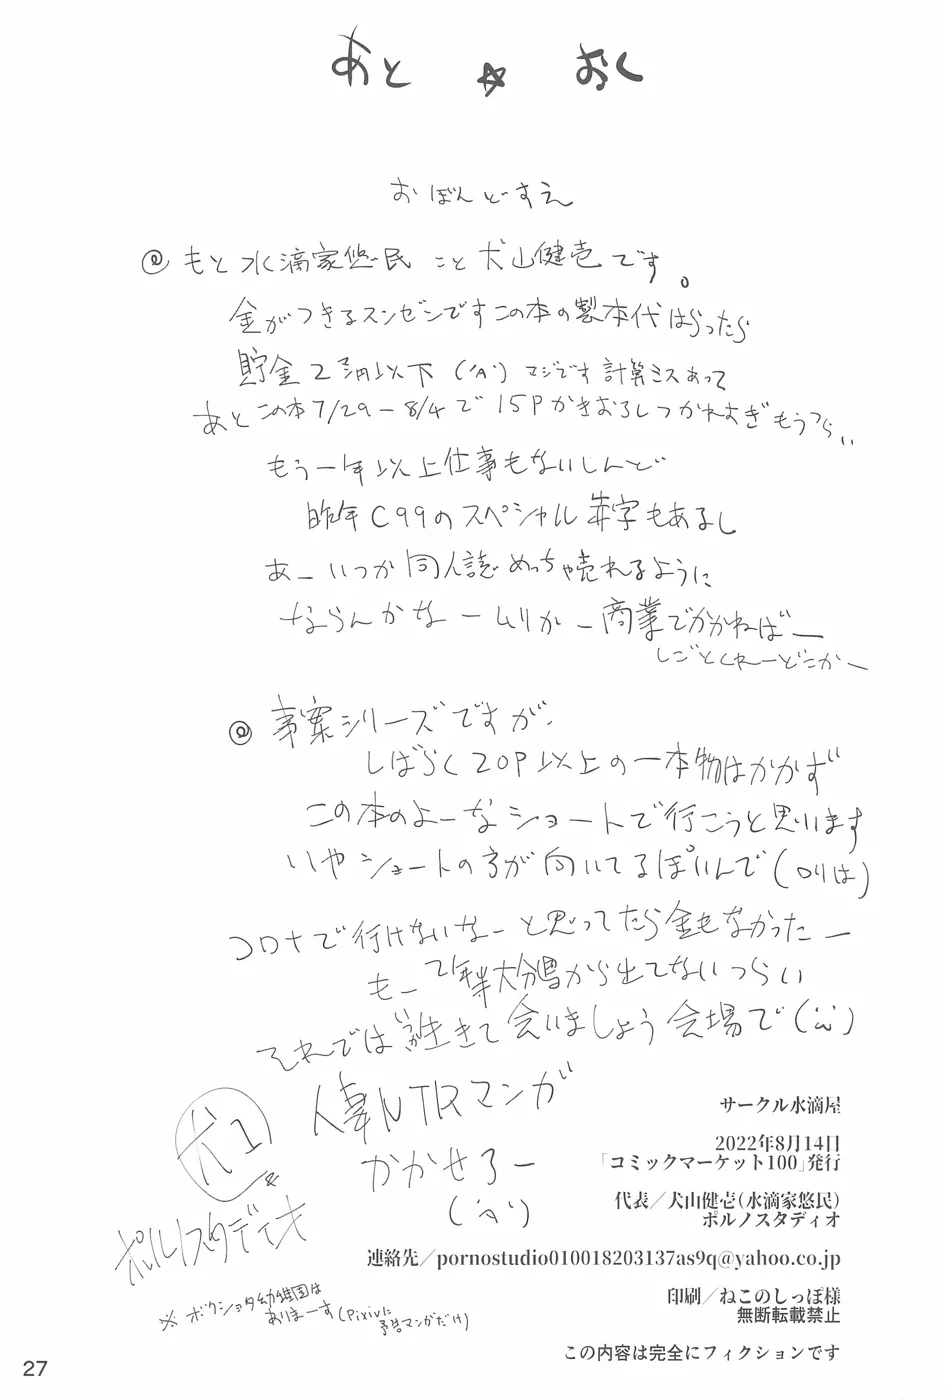 あと ☆ おく
おぼんどすえ
◎ もと水滴家悠民 こと 犬山健壱です。
金がつきるスンゼンですこの本の製本代はらったら
貯金2万円以下 マジです計算ミスあって
あと この本7/29-8/4で 15Pかきおろしつかれすぎもうつらい
もう一年以上仕事もないしんど
昨年C99のスペシャル赤字もあるし
あーいつか同人誌めっちゃ売れるように
ならんかなームリかー商業でかかねばー
しごとくれーどこかー
◎ 事案シリーズですが、
しばらく20P以上の一本物はかかず
この本のよーなショートで行こうと思います
いやショートの方が向いてるぽいんで
コロナで行けないなーと思ってたら金もなかったー
もー2年半大分県から出てないつらい
それではいつか生きて会いましょう会場で
人妻NTRマンガ
かかせろー
犬1
ポルノスタディオ
※ボクショタ幼稚園は
ありまーす(Pixivに
予告マンガだけ)
サークル水滴屋
2022年8月14日
「コミックマーケット100」発行
代表／犬山健壱(水滴家悠民)
ポルノスタディオ
連絡先／pornostudio010018203137as9q@yahoo.co.jp
印刷／ねこのしっぽ様
無断転載禁止
この内容は完全にフィクションです
27